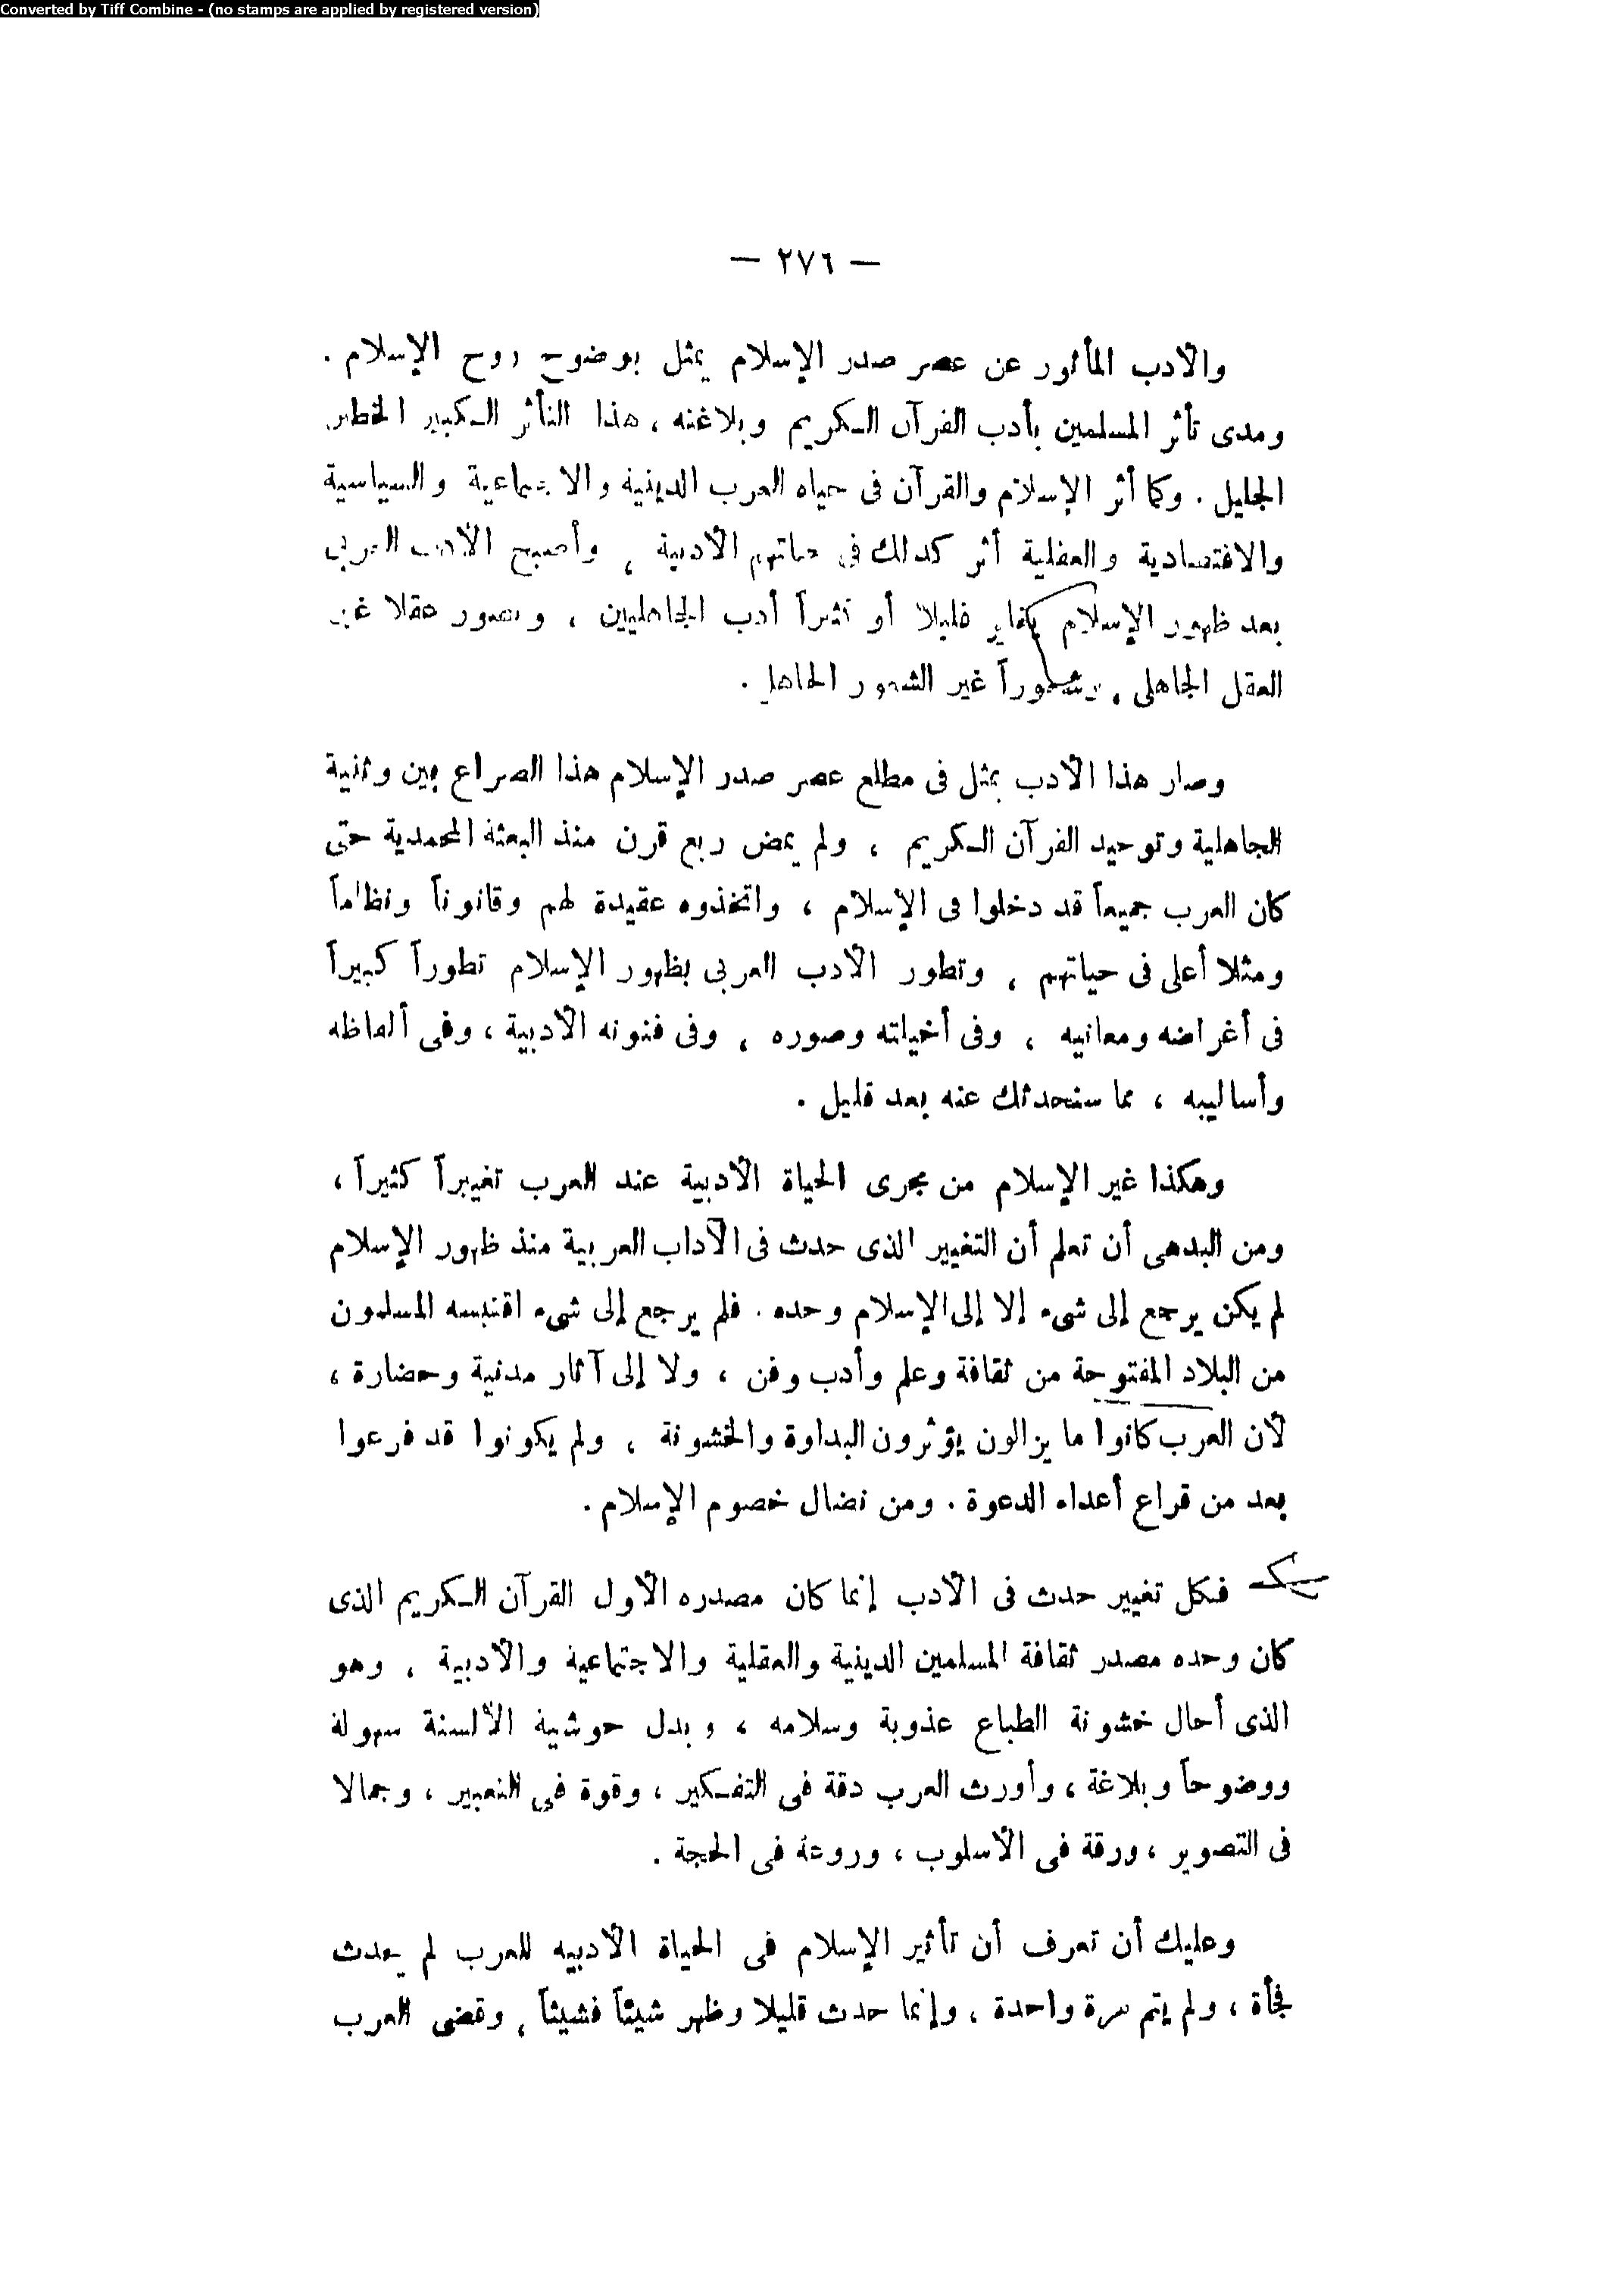 Converted by Tiff Combine - (no stamps are applied by registered version)
— ٢٧٦ —
والأدب المأثور عن عصر صدر الإسلام يمثل بوضوح روح الإسلام .
ومدى تأثر المسلمين بأدب القرآن الكريم وبلاغته ، هذا التأثر الكبير الخطير
الجليل . وكما أثر الإسلام والقرآن فى حياة العرب الدينية والاجتماعية والسياسية
والاقتصادية والعقلية أثر كذلك فى حياتهم الأدبية ، وأصبح الأدب العربى
بعد ظهور الإسلام قليلا أو كثيراً أدب الجاهليين ، ويصور عقلا غير
العقل الجاهلى ، وشعوراً غير الشعور الجاهلى .
وصار هذا الأدب يمثل فى مطلع عصر صدر الإسلام هذا الصراع بين وثنية
الجاهلية وتوحيد القرآن الكريم ، ولم يمض ربع قرن منذ البعثة المحمدية حتى
كان العرب جميعاً قد دخلوا فى الإسلام ، واتخذوه عقيدة لهم وقانوناً ونظاماً
ومثلا أعلى فى حياتهم ، وتطور الأدب العربى بظهور الإسلام تطوراً كبيراً
فى أغراضه ومعانيه ، وفى أخيلته وصوره ، وفى فنونه الأدبية ، وفى ألفاظه
وأساليبه ، مما سنحدثك عنه بعد قليل .
وهكذا غير الإسلام من مجرى الحياة الأدبية عند العرب تغييراً كثيراً ،
ومن البدهى أن تعلم أن التغيير الذى حدث فى الآداب العربية منذ ظهور الإسلام
لم يكن يرجع إلى شىء إلا إلى الإسلام وحده . فلم يرجع إلى شىء اقتبسه المسلمون
من البلاد المفتوحة من ثقافة وعلم وأدب وفن ، ولا إلى آثار مدنية وحضارة ،
لأن العرب كانوا ما يزالون يؤثرون البداوة والخشونة ، ولم يكونوا قد فرغوا
بعد من قراع أعداء الدعوة . ومن نضال خصوم الإسلام .
فكل تغيير حدث فى الأدب إنما كان مصدره الأول القرآن الكريم الذى
كان وحده مصدر ثقافة المسلمين الدينية والعقلية والاجتماعية والأدبية ، وهو
الذى أحال خشونة الطباع عذوبة وسلامه ، وبدل حوشية الألسنة سهولة
ووضوحاً وبلاغة ، وأورث العرب دقة فى التفكير ، وقوة فى التعبير ، وجمالا
فى التصوير ، ورقة فى الأسلوب ، وروعة فى الحجة .
وعليك أن تعرف أن تأثير الإسلام فى الحياة الأدبيه للعرب لم يحدث
فجأة ، ولم يتم مرة واحدة ، وإنما حدث قليلا وظهر شيئاً فشيئاً ، وقضى العرب